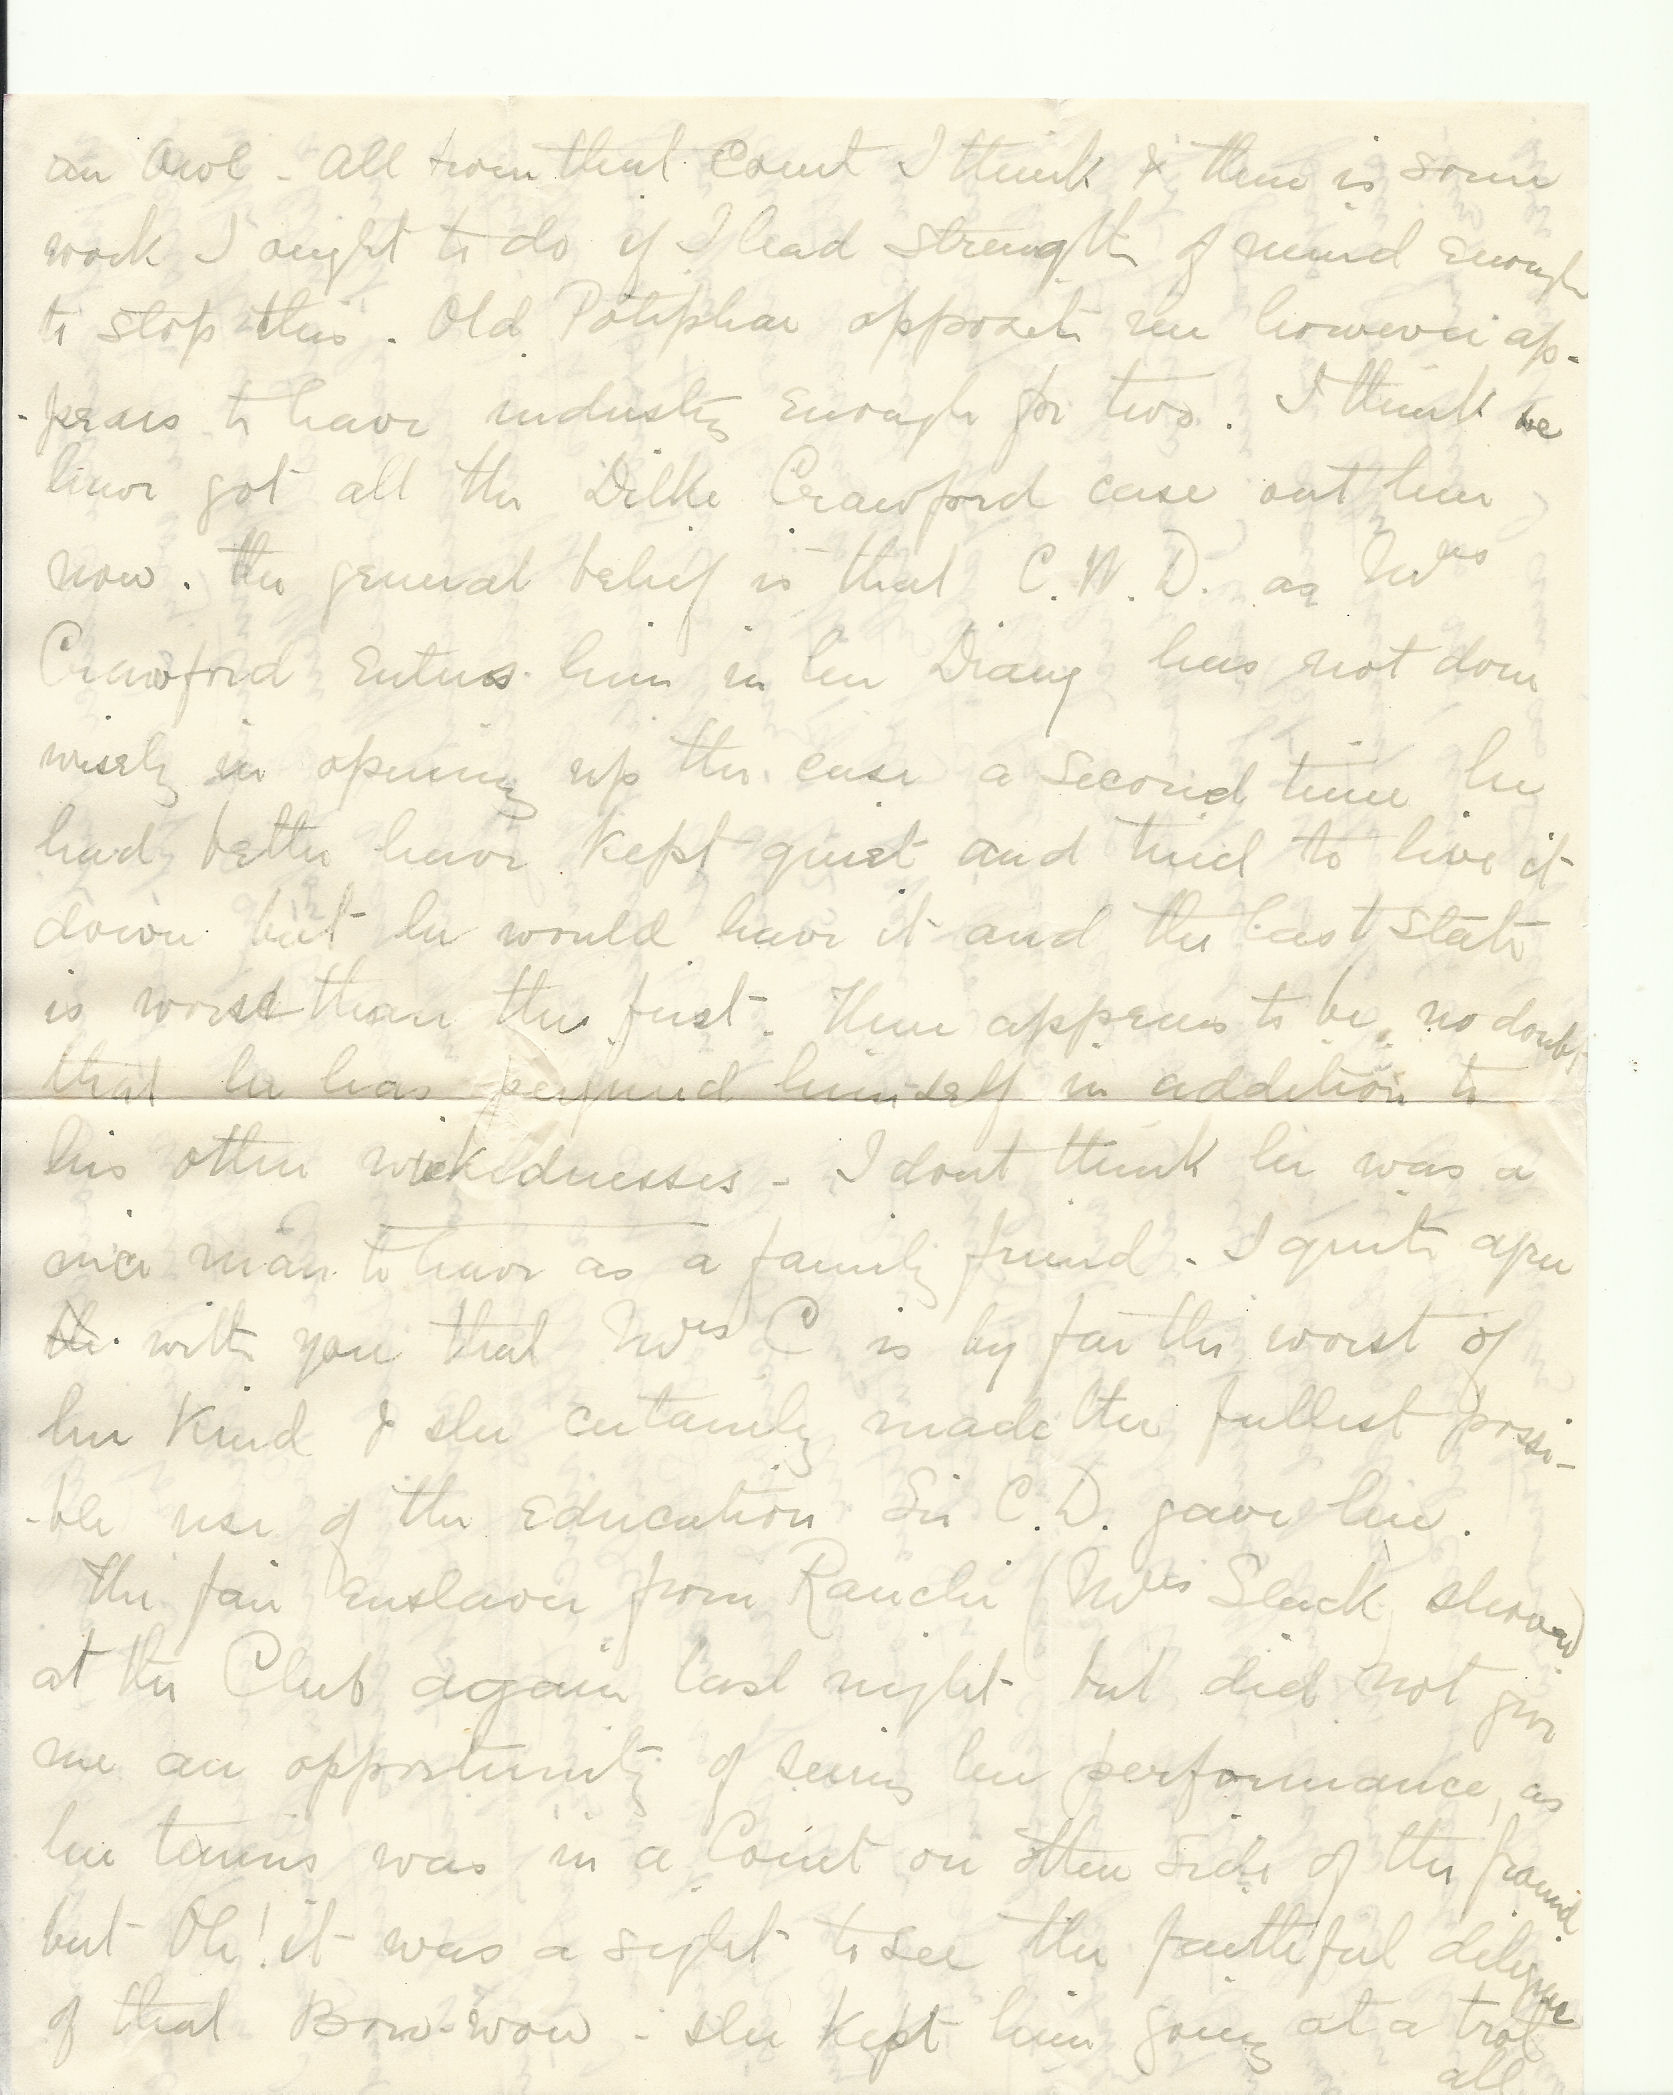 an Owl - All from that Court I think & there is some
work I ought to do if I had strength of mind enough
to stop this. Old Potiphar opposite me however ap-
-pears to have industry enough for two. I think we
have got all the Dilke Crawford case out here
now. The general belief is that C.W.D. as Mrs
Crawford enters him in her Diary has not done
wisely in opening up the case a second time he
had better have kept quiet and tried to live it
down but he would have it and the last state
is worse than the first. There appears to be no doubt
that he has perjured himself in addition to
his other wickednesses - I dont think he was a
nice man to have as a family friend - I quite agree
with you that Mrs C is by far the worst of
her kind & she certainly made the fullest possi-
-ble use of the education Sir C.D. gave her.
The fair enslaver from Ranchi (Mrs Slack showed
at the Club again last night but did not give
me an opportunity of seeing her performance, as
her tennis was in a Court on other side of the ground
but Oh! it was a sight to see the faithful diligence
of that Bow-wow - she kept him going at a trot
all